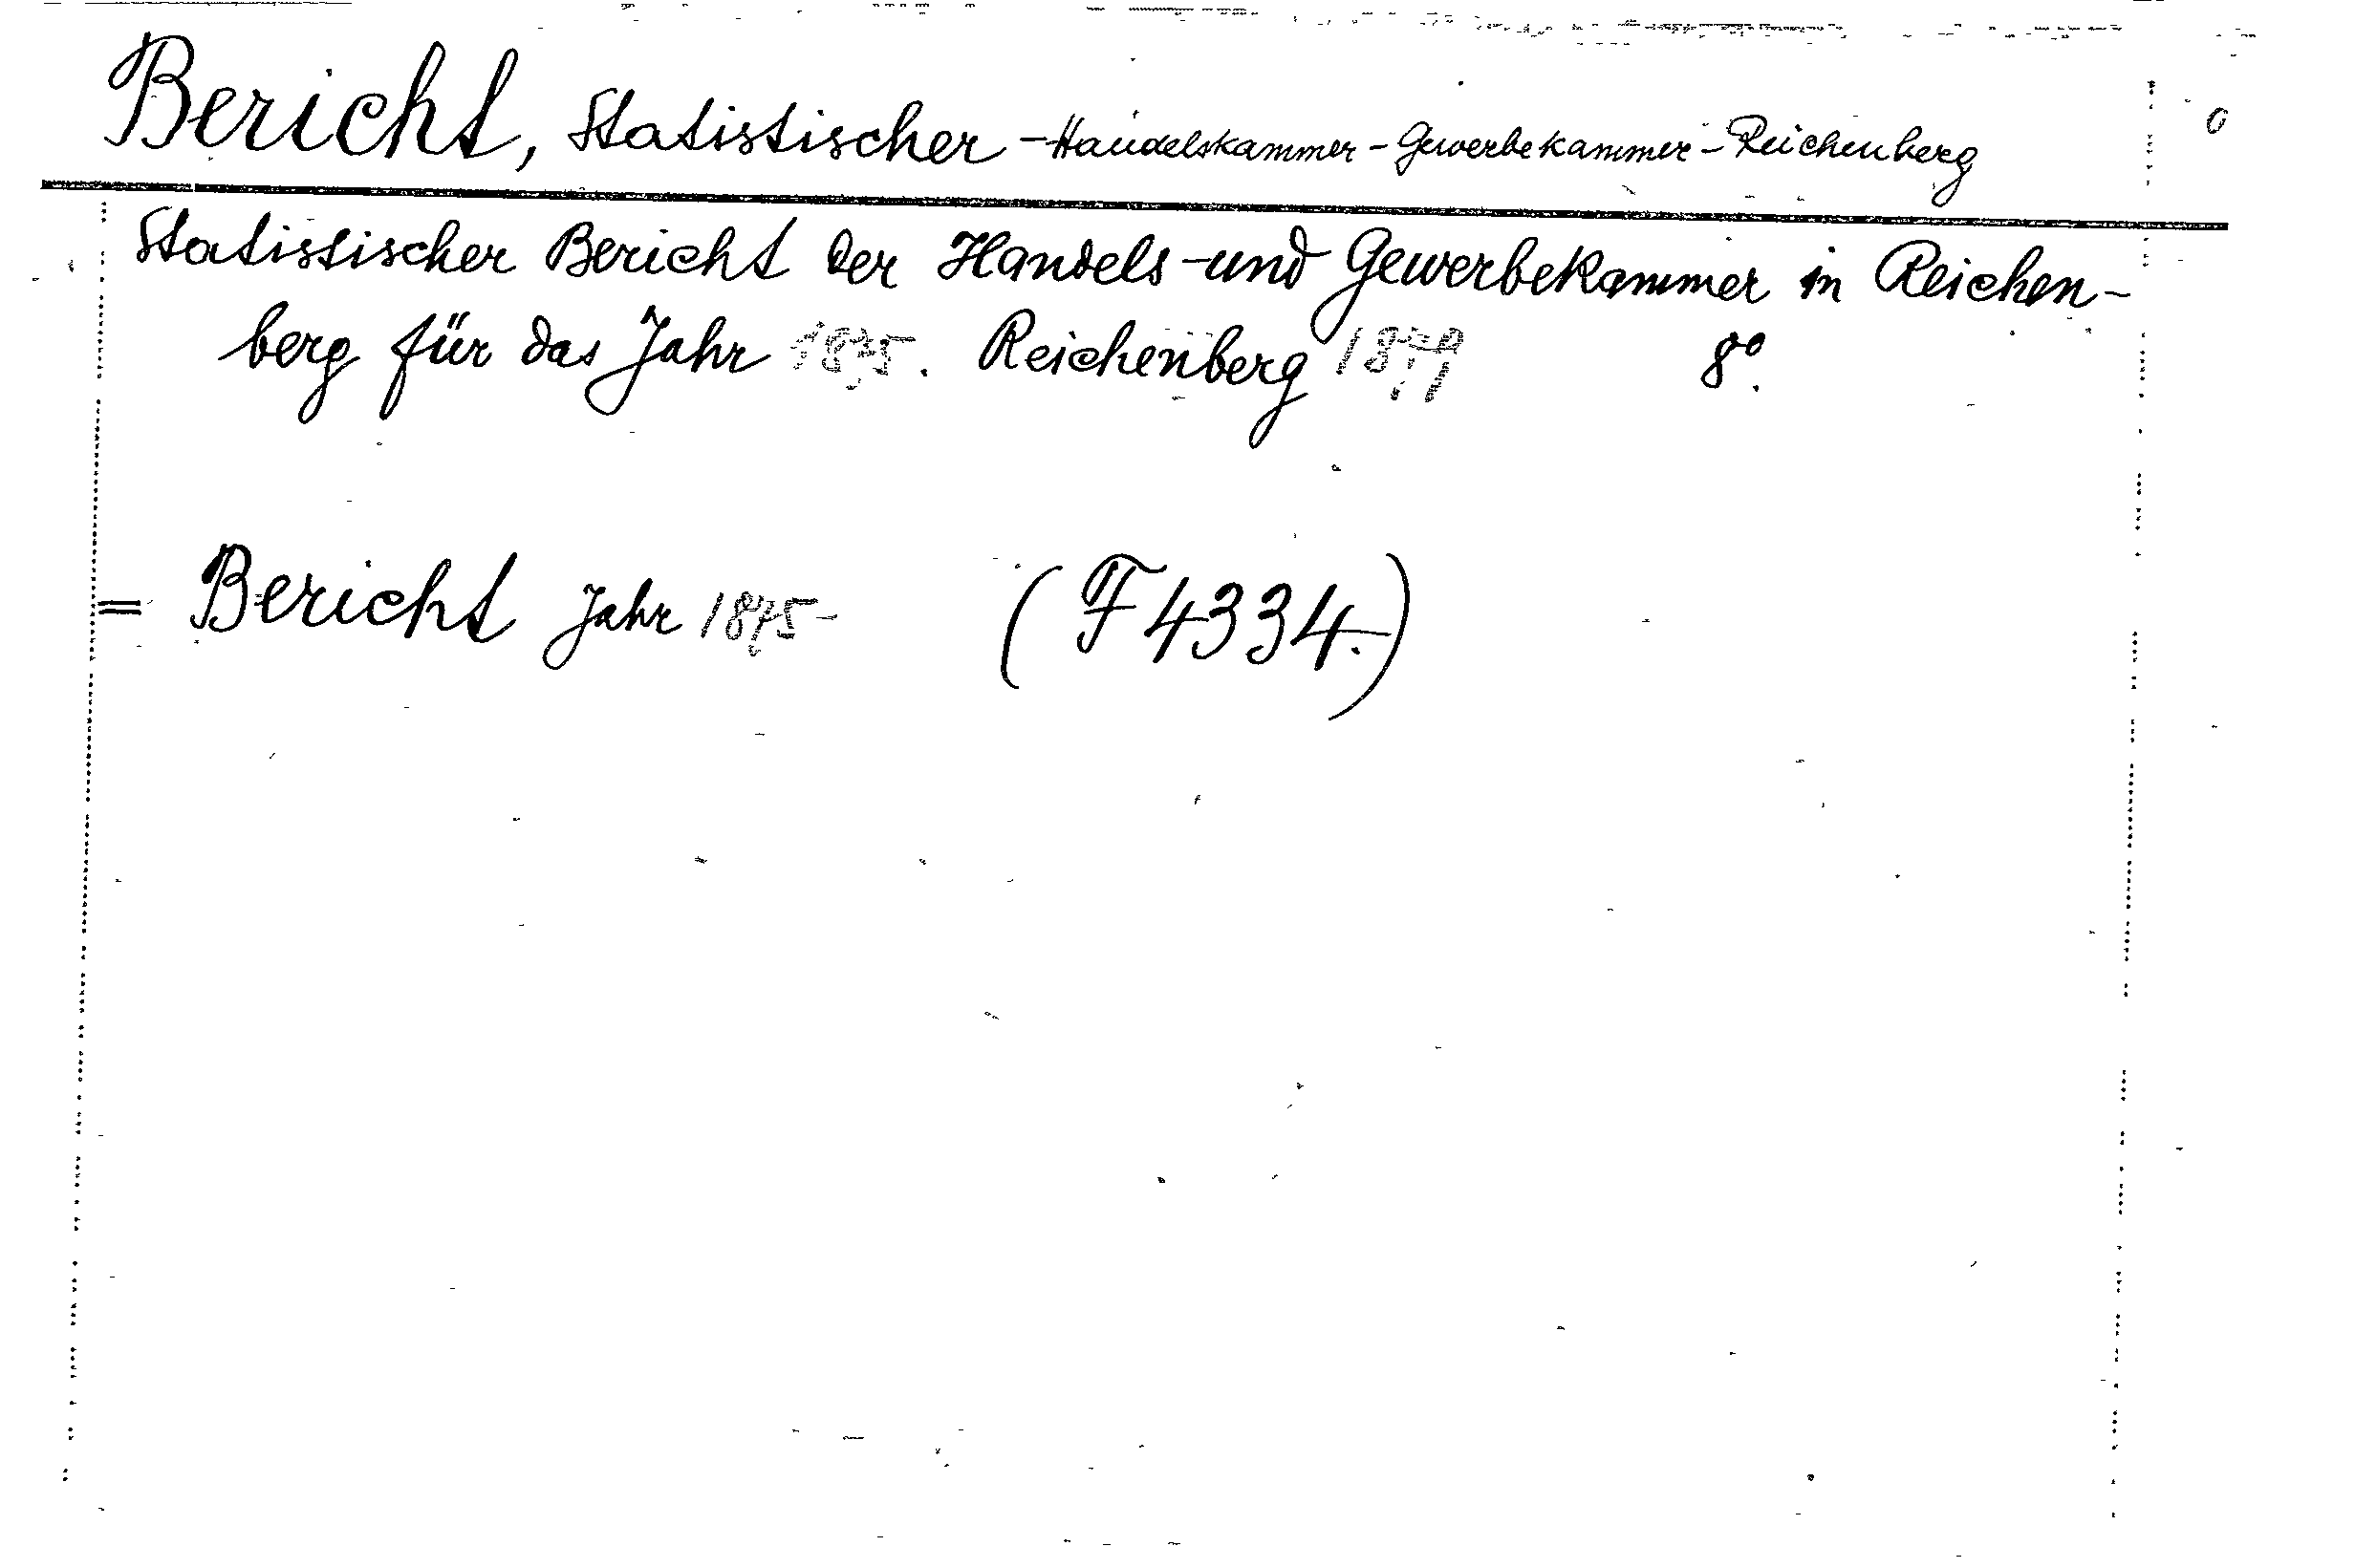 Bericht, Statistischer -Handelskammer-Gewerbekammer-Reichenberg 0
Statistischer Bericht der Handels-und Gewerbekammer in Reichen-
berg für das Jahr 1875. Reichenberg 1879 8°.
= Bericht Jahr 1875- (F 4334.)